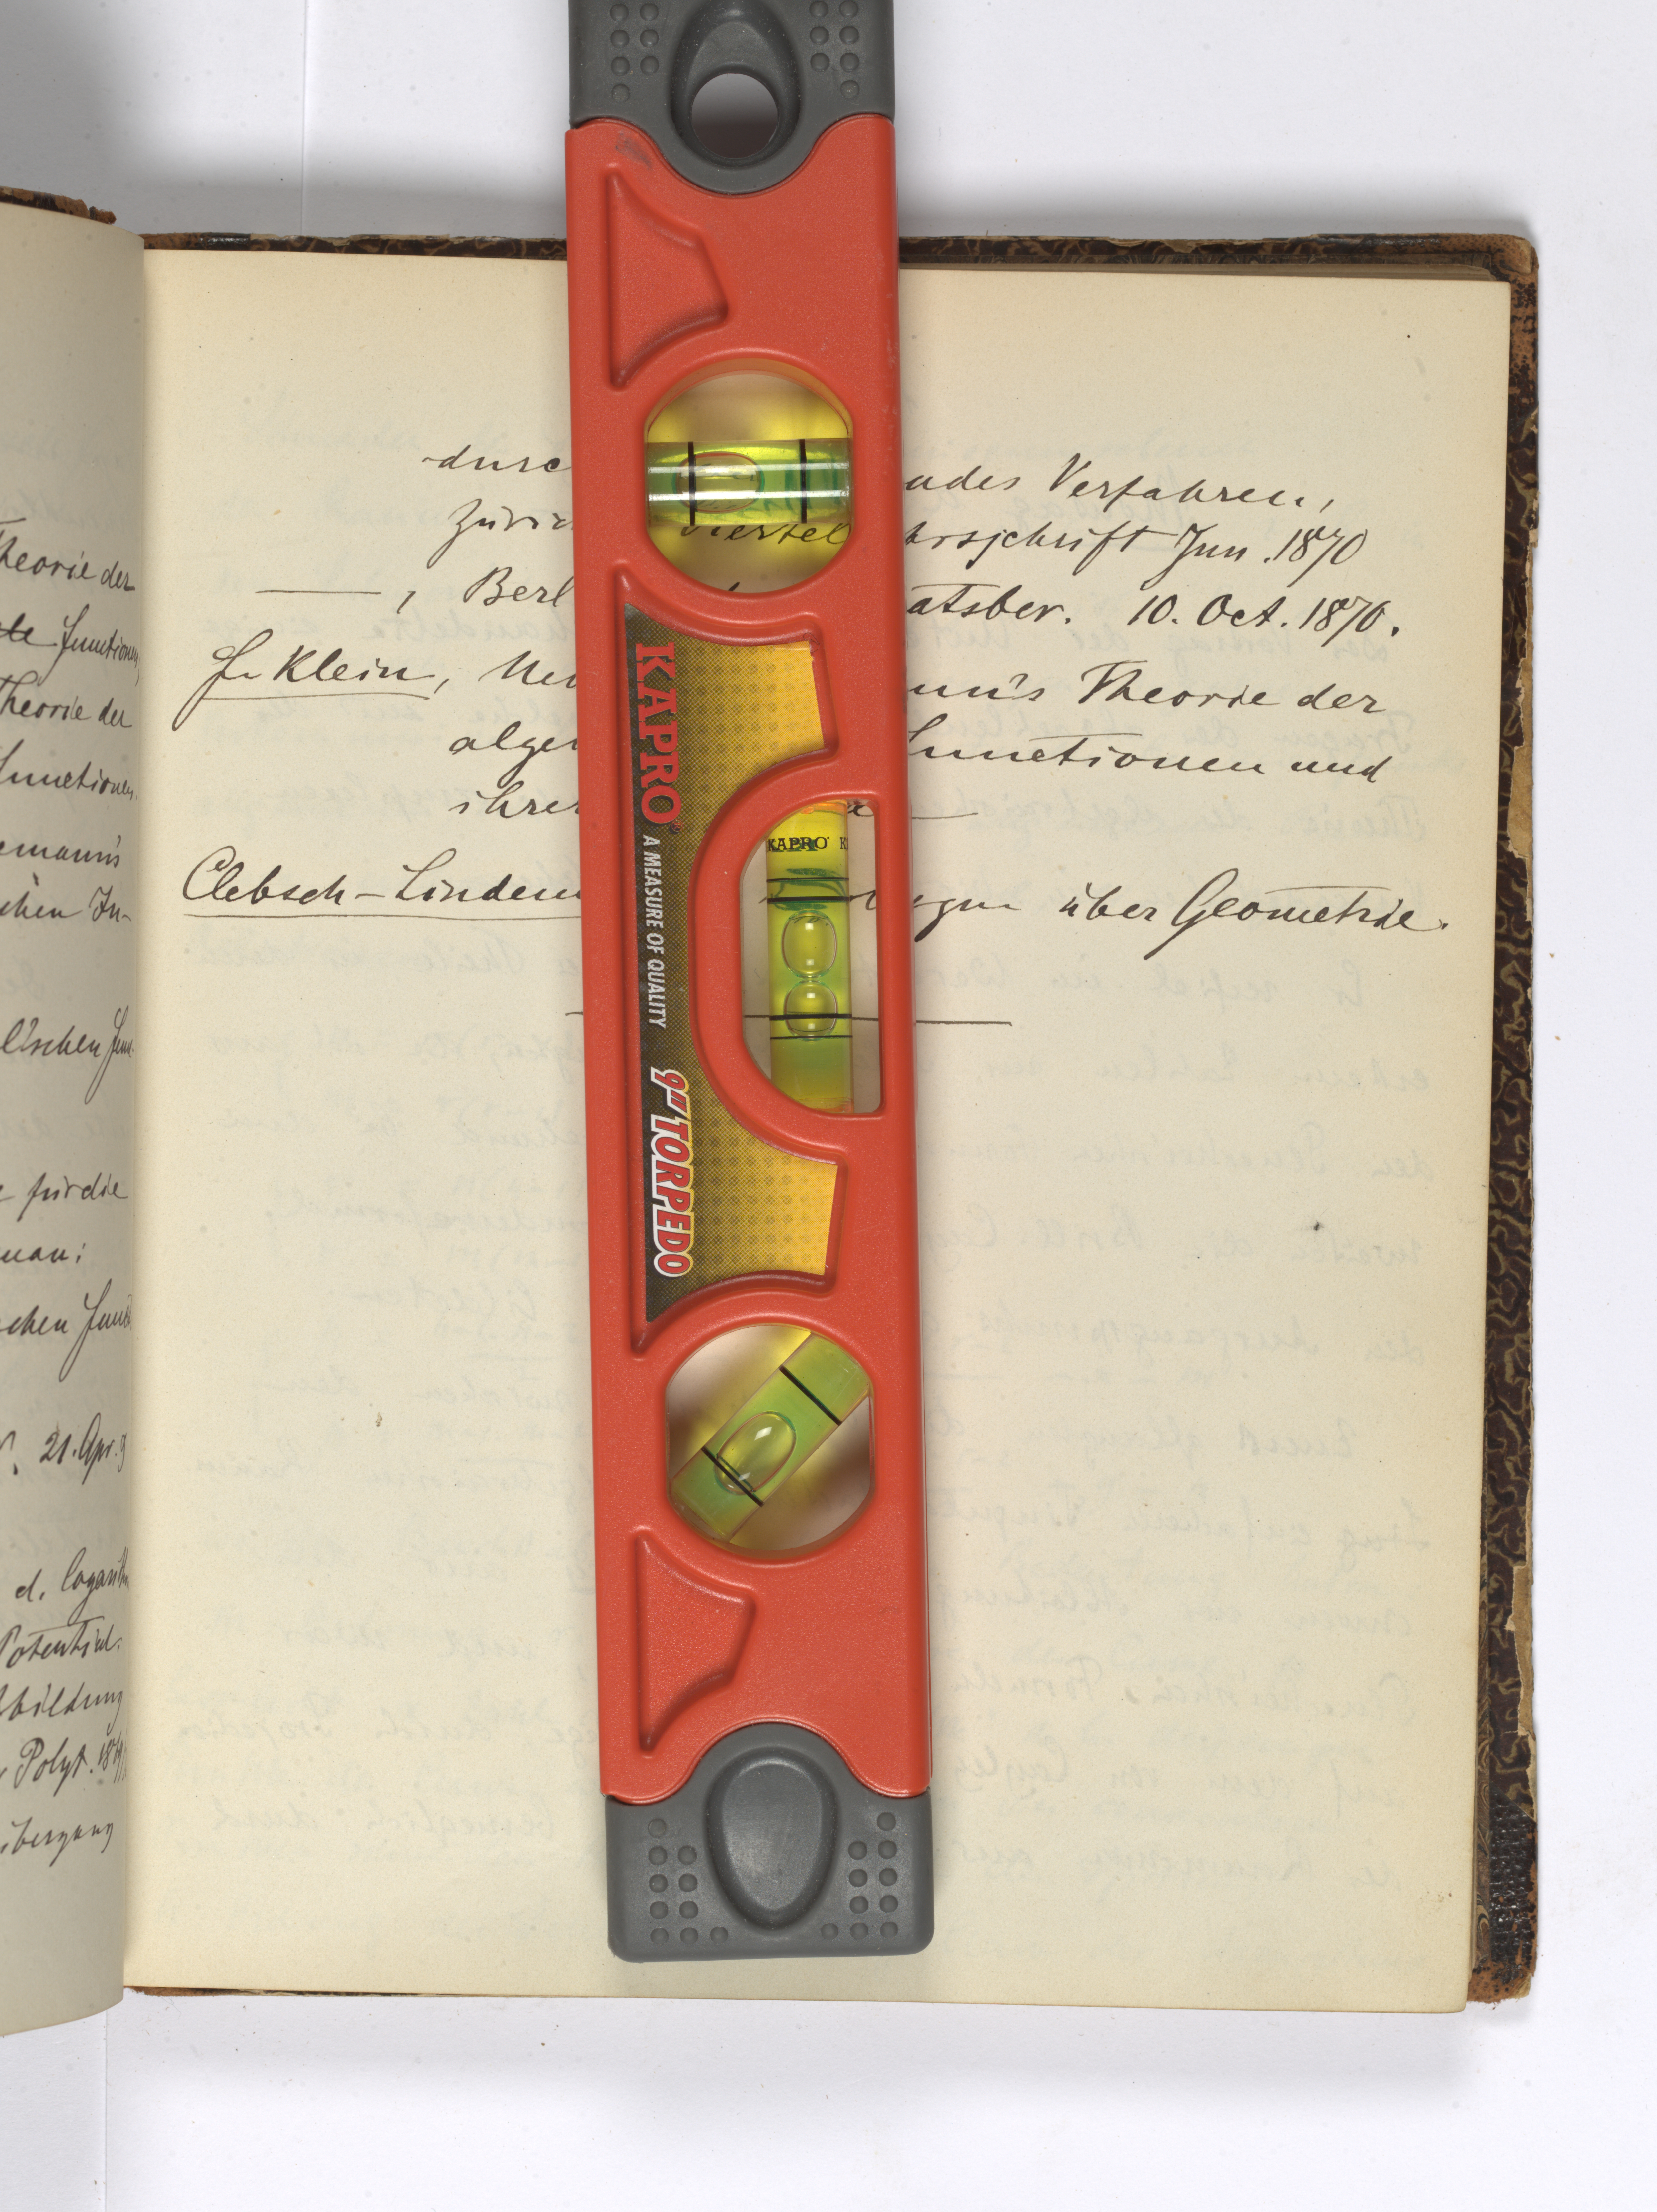 heorie der
te Functionen,
Theorie der
Functionen.
emann's
chen In-
l'schen Fun
für die
man:
schen Funct
21. Apr. 9
d. logarith
Potential.
bbildung
Polyt. 18
übergang
durc ndes Verfahren,
Züric viertel hrsschrift Jun. 1870
——, Berl atsber. 10. Oct. 1870.
F. Klein, Ueb nn's Theorie der
algeb Functionen und
ihrer
Clebsch-Lindem über Geometrie.
KAPRO
A MEASURE OF QUALITY
9" TORPEDO
KAPRO K